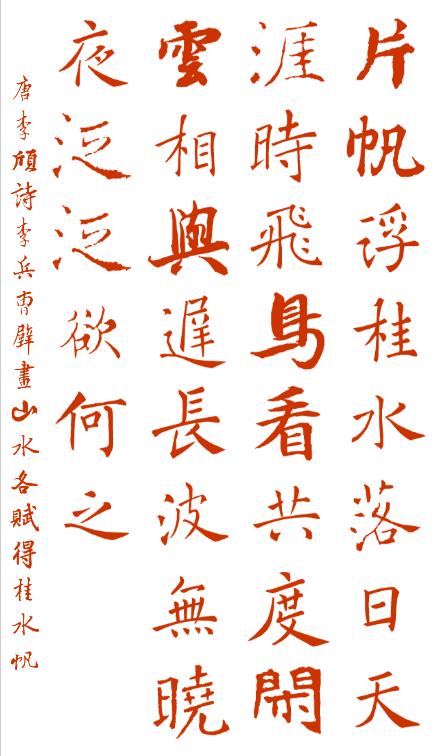 片帆浮桂水落日天
涯時飛鳥看共度閑
雲相與遲長波無曉
夜泛泛欲何之
唐李頎詩李兵曹壁畫山水各賦得桂水帆